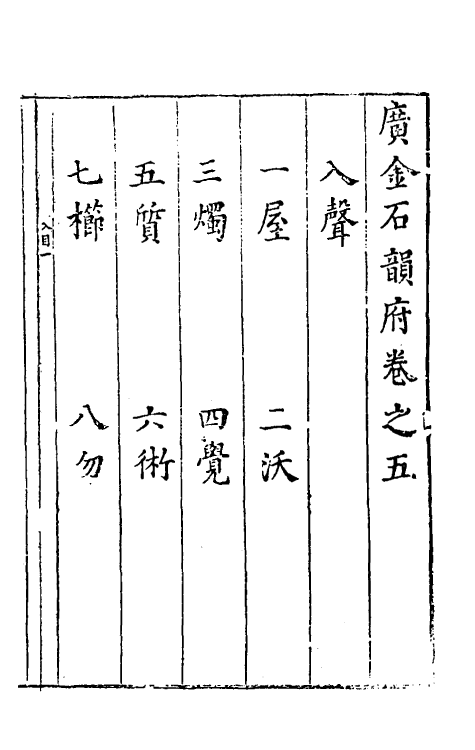 廣金石韻府卷之五
入聲
一屋 二沃
三燭 四覺
五質 六術
七櫛 八勿
入目一